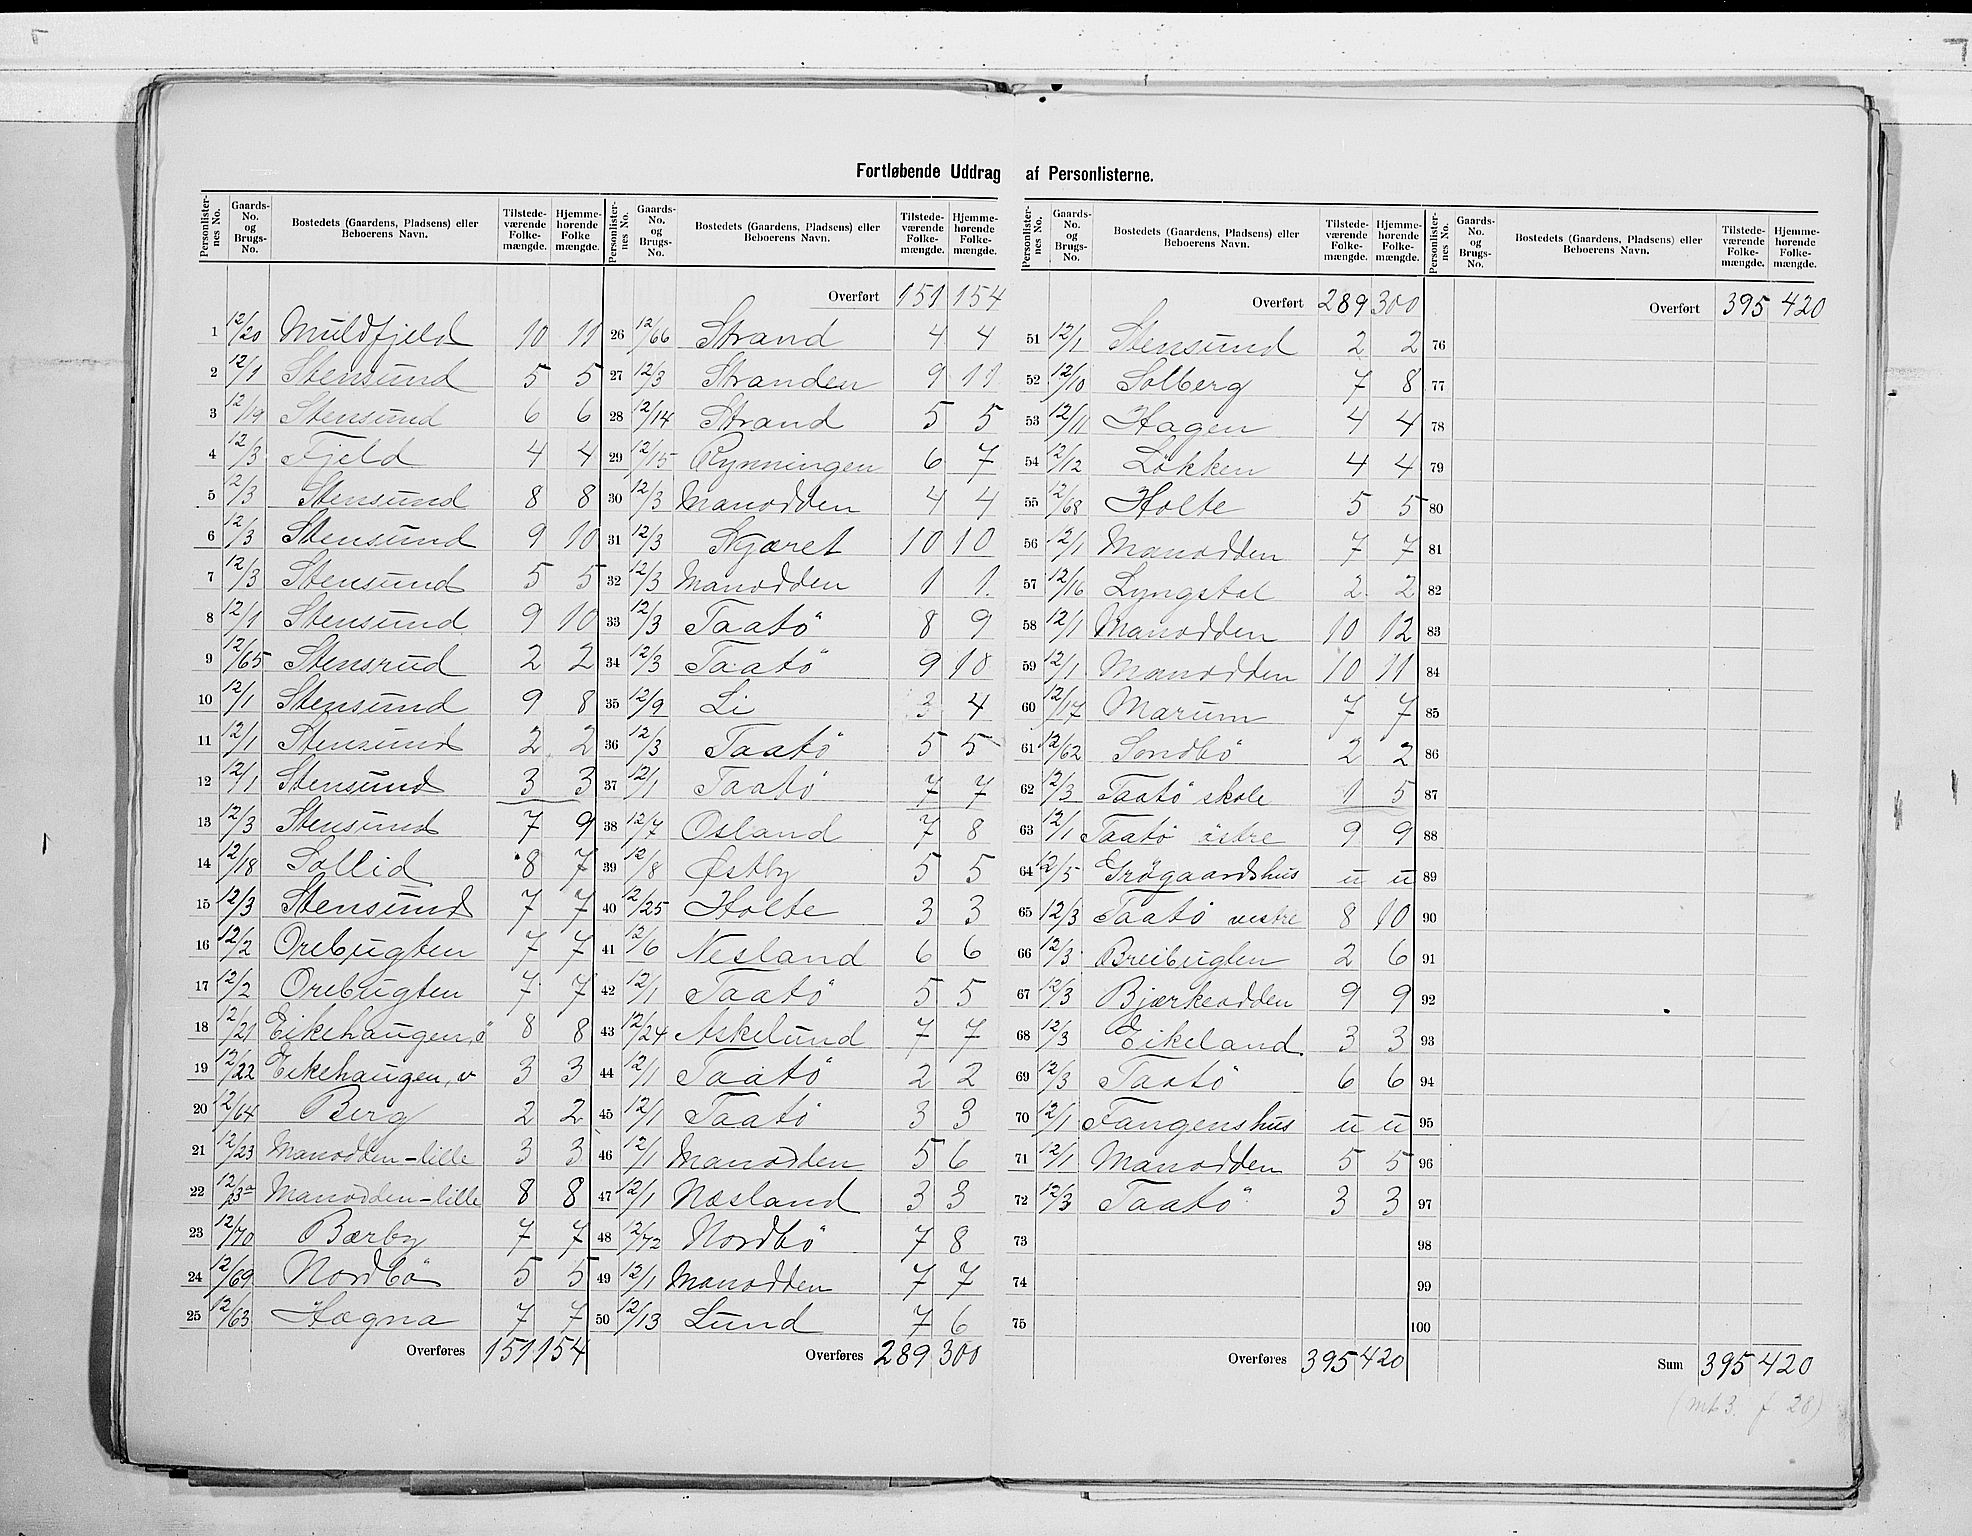 Fortløbende Uddrag af Personlisterne.
Personlister-nes No. | Gaards-No. og Brugs-No. | Bostedets (Gaardens, Pladsens) eller Beboerens Navn. | Tilstede-værende Folke-mængde. | Hjemme-hørende Folke mængde.
1 12/20 Muldfjeld 10 11
2 12/1 Stensund 5 5
3 12/19 Stensund 6 6
4 12/3 Fjeld 4 4
5 12/3 Stensund 8 8
6 12/3 Stensund 9 10
7 12/3 Stensund 5 5
8 12/1 Stensund 9 10
9 12/65 Stensrud 2 2
10 12/1 Stensund 9 8
11 12/1 Stensund 2 2
12 12/1 Stensund 3 3
13 12/3 Stensund 7 9
14 12/18 Sollid 8 7
15 12/3 Stensund 7 7
16 12/2 Orebugten 7 7
17 12/2 Orebugten 7 7
18 12/21 Eikehaugen, ö 8 8
19 12/22 Eikehaugen, v 3 3
20 12/64 Berg 2 2
21 12/23 Manodden-lille 3 3
22 Manodden-lille 8 8
23 12/70 Bærby 7 7
24 12/69 Nordbö 5 5
25 12/63 Hægna 7 7
Overføres 151 154
Personlister-nes No. | Gaards-No. og Brugs-No. | Bostedets (Gaardens, Pladsens) eller Beboerens Navn. | Tilstede-værende Folke-mængde. | Hjemme-hørende Folke-mængde.
Overført 151 154
26 12/66 Strand 4 4
27 12/3 Stranden 9 11
28 12/14 Strand 5 5
29 12/15 Rynningen 6 7
30 12/3 Manodden 4 4
31 12/3 Kjæret 10 10
32 12/3 Manodden 1 1.
33 12/3 Taatö 8 9
34 12/3 Taatö 9 10
35 12/9 Li 3 4
36 12/3 Taatö 5 5
37 12/1 Taatö 7 7
38 12/7 Osland 7 8
39 12/8 Østby 5 5
40 12/25 Holte 3 3
41 12/6 Nesland 6 6
42 12/1 Taatö 5 5
43 12/24 Askelund 7 7
44 12/1 Taatö 2 2
45 12/1 Taatö 3 3
46 12/1 Manodden 5 6
47 12/1 Næsland 3 3
48 12/72 Nordbö 7 8
49 12/1 Manodden 7 7
50 12/13 Lund 7 6
Overføres 289 300
Personlister-nes No. | Gaards-No. og Brugs-No. | Bostedets (Gaardens, Pladsens) eller Beboerens Navn. | Tilstede-værende Folke-mængde. | Hjemme-hørende Folke-mængde.
Overført 289 300
51 12/1 Stensund 2 2
52 12/10 Solberg 7 8
53 12/11 Hagen 4 4
54 12/12 Løkken 4 4
55 12/68 Holte 5 5
56 12/1 Manodden 7 7
57 12/16 Lyngstal 2 2
58 12/1 Manodden 10 12
59 12/1 Manodden 10 11
60 12/17 Marum 7 7
61 12/62 Sondbö 2 2
62 12/3 Taatö skole 1 5
63 12/1 Taatö östre 9 9
64 12/5 Grögaardshus u u
65 12/3 Taatö vestre 8 10
66 12/3 Breibugten 2 6
67 12/3 Bjærkeodden 9 9
68 12/3 Eikeland 3 3
69 12/3 Taatö 6 6
70 12/1 Fangenshus u u
71 12/1 Manodden 5 5
72 12/3 Taatö 3 3
73
74
75
Overføres 395 420
Personlister-nes No. | Gaards-No. og Brugs-No. | Bostedets (Gaardens, Pladsens) eller Beboerens Navn. | Tilstede-værende Folke-mængde. | Hjemme-hørende Folke-mængde.
Overført 395 420
76
77
78
79
80
81
82
83
84
85
86
87
88
89
90
91
92
93
94
95
96
97
98
99
100
Sum 395 420